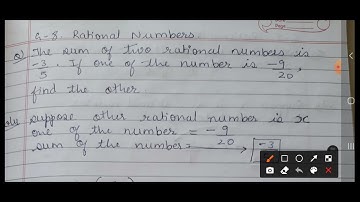 G-8. Rational Numbers
Q) The sum of two rational numbers is
-3/5. If one of the number is -9/20,
find the other.
Suppose other rational number is x
one of the number = -9/20
sum of the number= -3